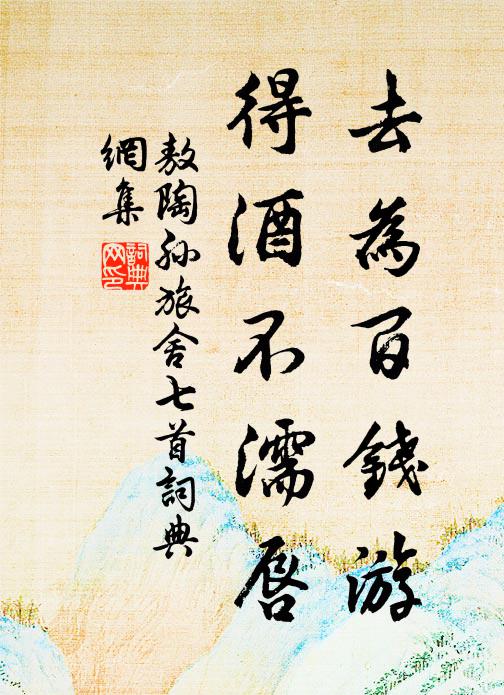 去為百錢游
得酒不濡唇
敖陶孫旅舍七首詞典
網集
詞典
网印